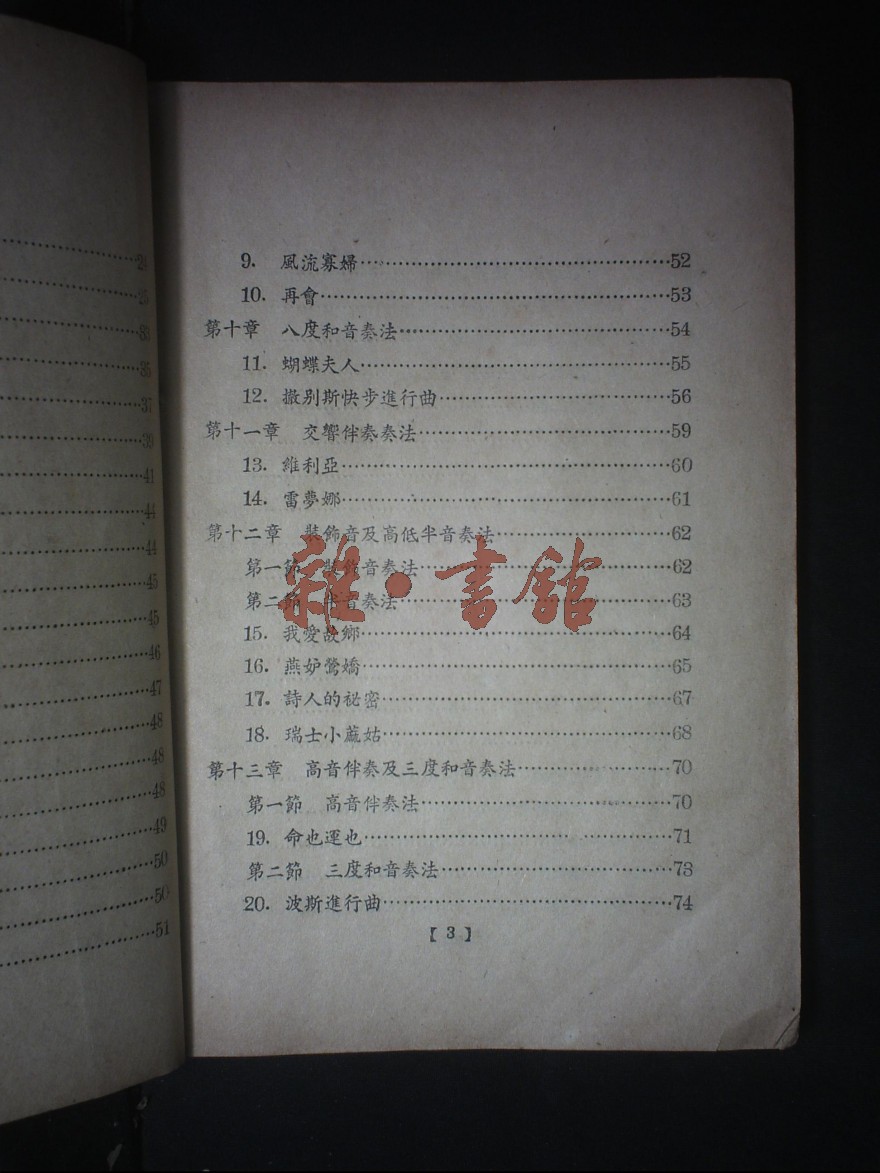 24
25
33
35
37
39
41
44
44
45
45
46
47
48
48
48
49
50
50
51
9. 風流寡婦……52
10. 再會……53
第十章 八度和音奏法……54
11. 蝴蝶夫人……55
12. 撒別斯快步進行曲……56
第十一章 交響伴奏奏法……59
13. 維利亞……60
14. 雷夢娜……61
第十二章 裝飾音及高低半音奏法……62
第一節 裝飾音奏法……62
第二節 半音奏法……63
15. 我愛故鄉……64
16. 燕妒鶯嬌……65
17. 詩人的祕密……67
18. 瑞士小蘑姑……68
第十三章 高音伴奏及三度和音奏法……70
第一節 高音伴奏法……70
19. 命也運也……71
第二節 三度和音奏法……73
20. 波斯進行曲……74
【3】
雜·書館